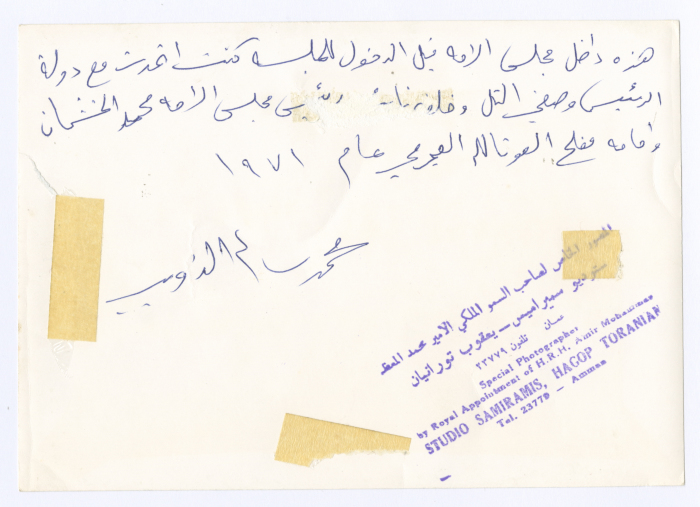 هذه داخل مجلس الامه قبل الدخول للجلسه كنت اتحدث مع دولة
الرئيس وصفي التل وخلفه نائب رئيس مجلس الامه محمد الخشمان
وامامه مفلح العجرمي عام ١٩٧١
محمد سالم الذويب
المصور الخاص لصاحب السمو الملكي الامير محمد المعظم
ستوديو سميراميس - يعقوب تورانيان
عمان تلفون ٢٣٧٧٩
Special Photographer
by Royal Appointment of H.R.H. Amir Mohammad
STUDIO SAMIRAMIS, HAGOP TORANIAN
Tel. 23779 - Amman